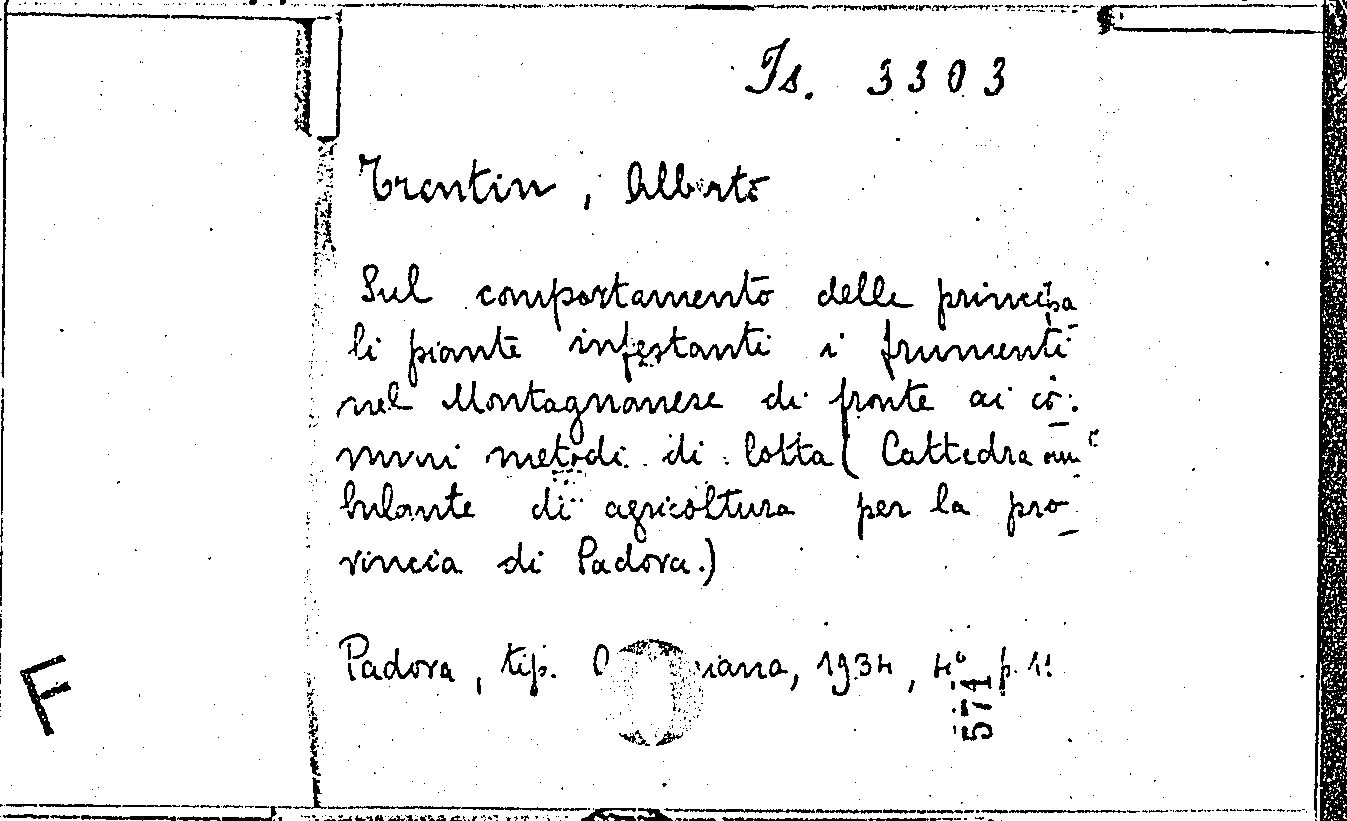 Is. 3303
Trentin, Alberto
Sul comportamento delle principa
li piante infestanti i frumenti
nel Montagnanese di fronte ai co-
muni metodi di lotta (Cattedra am
bulante di agricoltura per la pro
vincia di Padova.)
Padova, tip. 1934, 4° p.
571
F